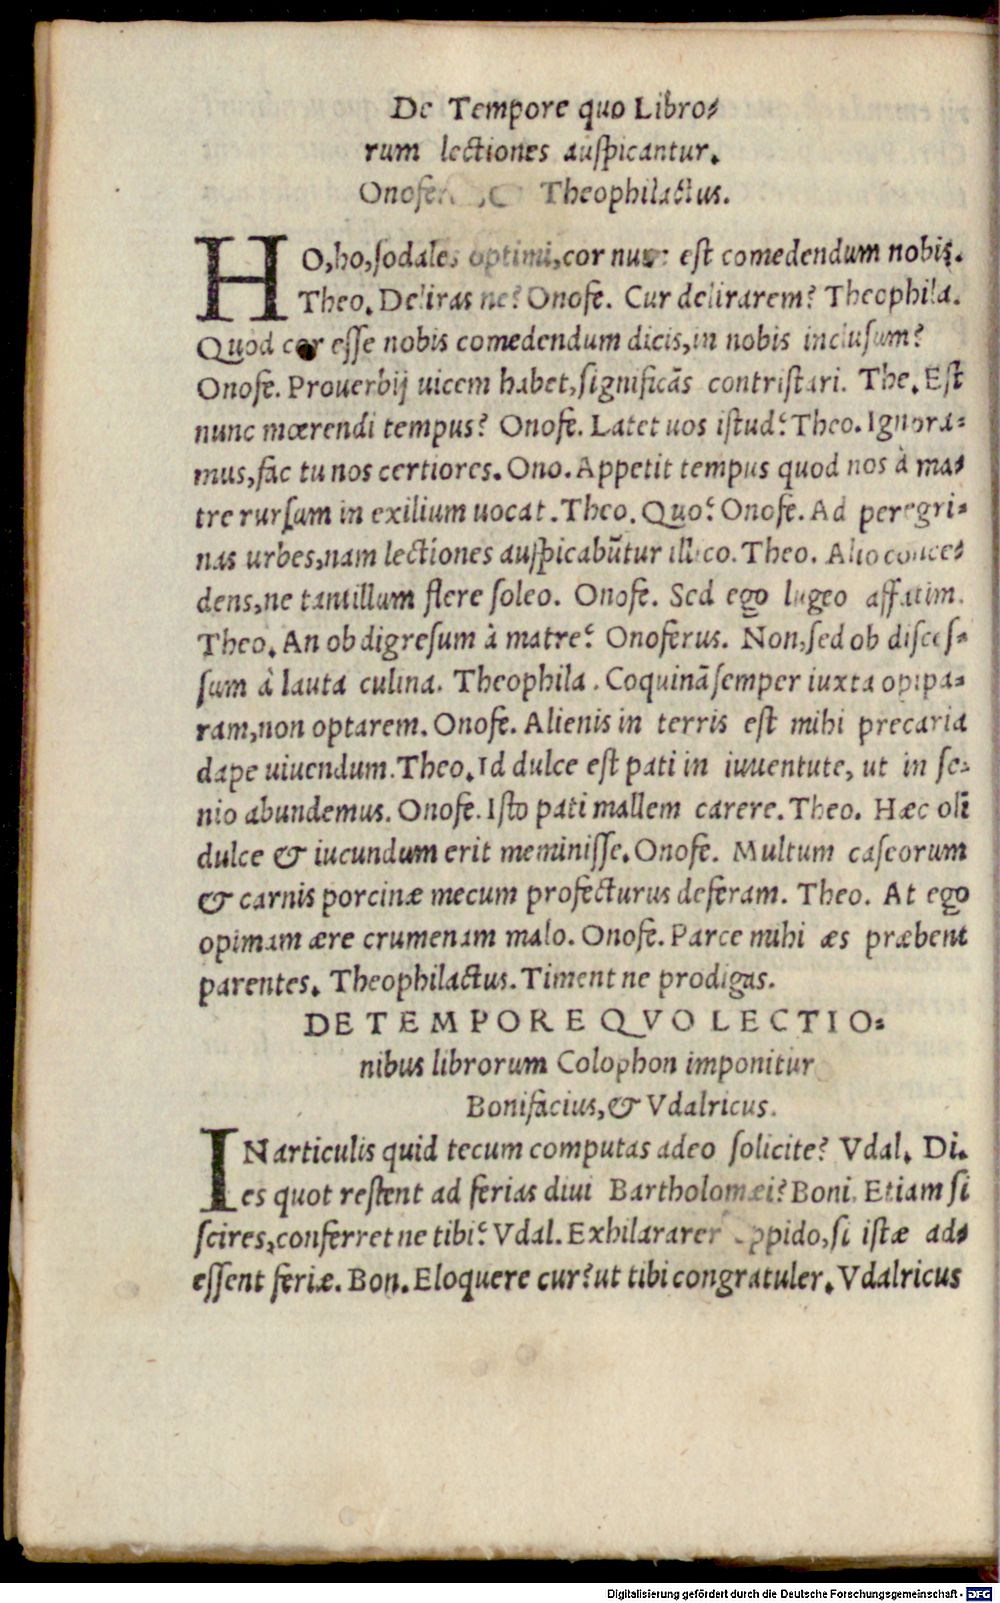 De Tempore quo Libro-
rum lectiones auspicantur.
Theophilactus.
HO, ho, sodales optimi, cor nunc est comedendum nobis.
Theo. Deliras ne? Onofe. Cur delirarem? Theophila.
Quod cor esse nobis comedendum dicis, in nobis inclusum?
Onofe. Prouerbij uicem habet, significãs contristari. The. Est
nunc mœrendi tempus? Onofe. Latet uos istud? Theo. Ignora-
mus, fac tu nos certiores. Ono. Appetit tempus quod nos à ma-
tre rursum in exilium uocat. Theo. Quo? Onofe. Ad peregri-
nas urbes, nam lectiones auspicabũtur illico. Theo. Alio conce-
dens, ne tantillum flere soleo. Onofe. Sed ego lugeo affatim.
Theo. An ob digresum à matre? Onoferus. Non, sed ob disces-
sum à lauta culina. Theophila. Coquinã semper iuxta opipa-
ram, non optarem. Onofe. Alienis in terris est mihi precaria
dape uiuendum. Theo. Id dulce est pati in iuuentute, ut in se-
nio abundemus. Onofe. Isto pati mallem carere. Theo. Hæc olĩ
dulce & iucundum erit meminisse. Onofe. Multum caseorum
& carnis porcinæ mecum profecturus deferam. Theo. At ego
opimam ære crumenam malo. Onofe. Parce mihi æs præbent
parentes. Theophilactus. Timent ne prodigas.
DE TEMPORE QVO LECTIO-
nibus librorum Colophon imponitur
Bonifacius, & Vdalricus.
IN articulis quid tecum computas adeo solicite? Vdal. Di-
es quot restent ad ferias diui Bartholomæi? Boni. Etiam si
scires, conferret ne tibi? Vdal. Exhilararer oppido, si istæ ad-
essent feriæ. Bon. Eloquere cur? ut tibi congratuler. Vdalricus
Digitalisierung gefördert durch die Deutsche Forschungsgemeinschaft - DFG